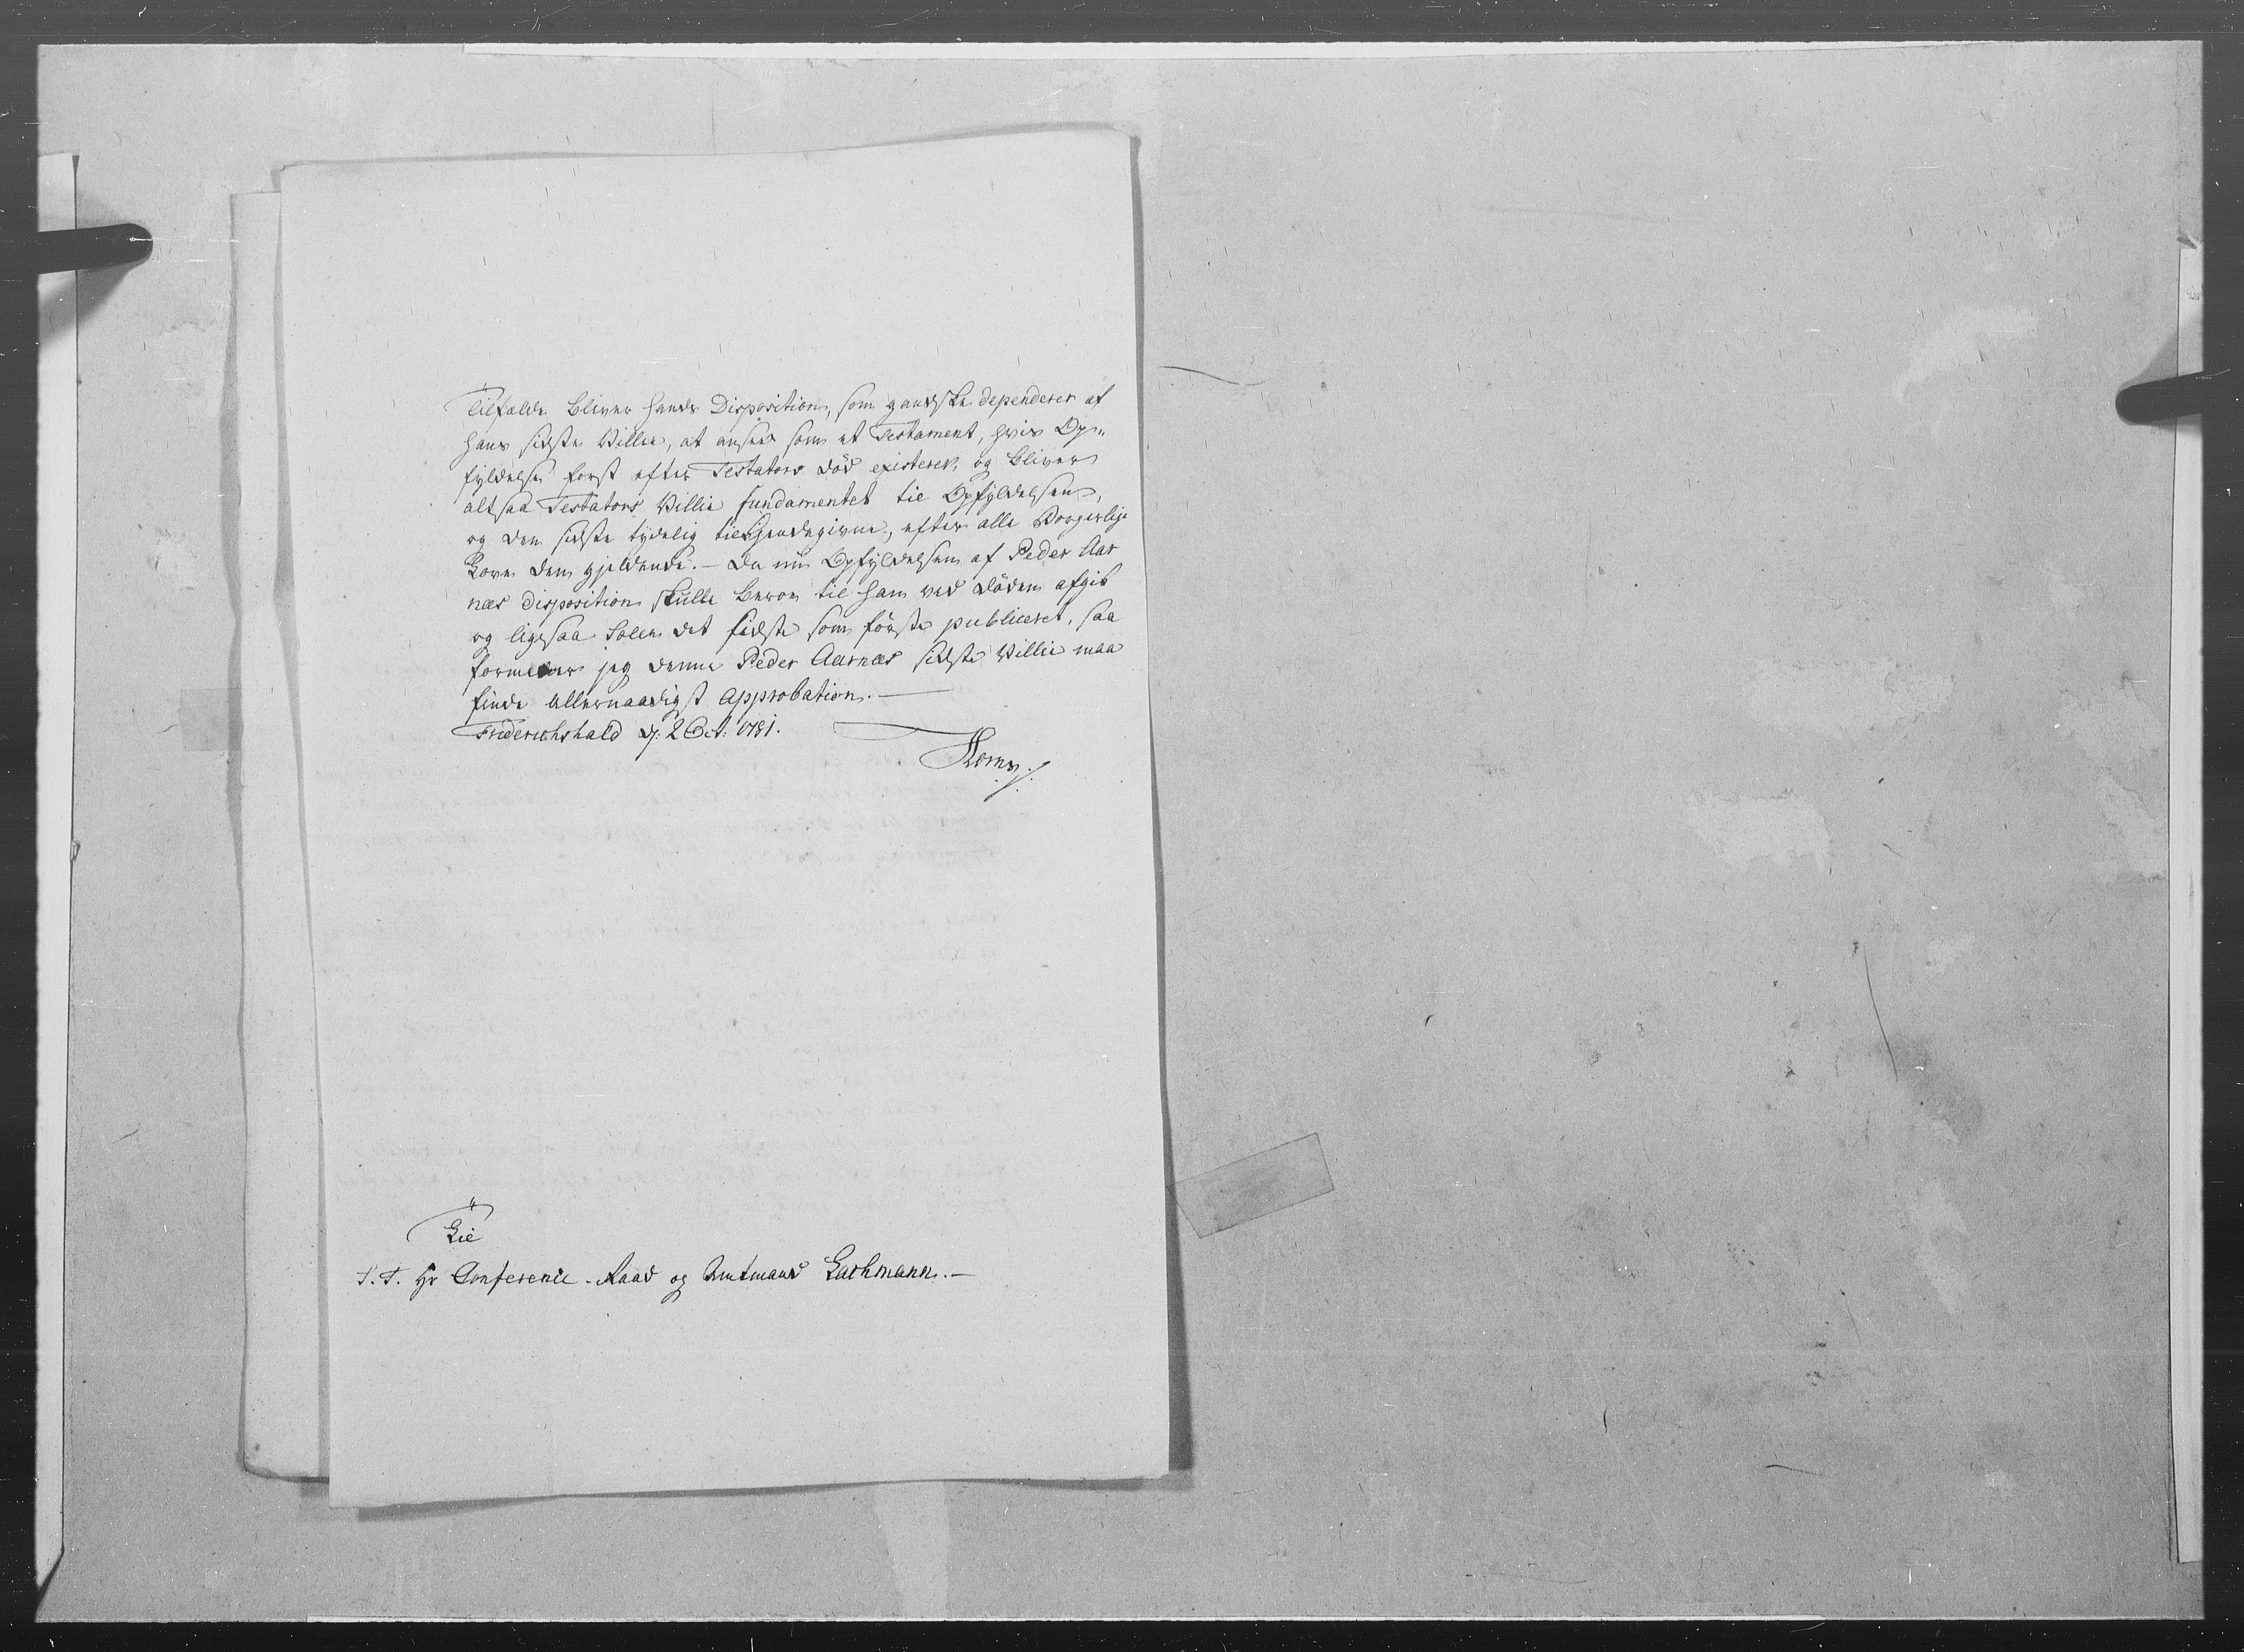 Tilfælde bliver hands Disposition, som gandske dependerer af
hans sidste Villie, at ansee som et Testament, hvis Op„
fyldelse først efter Testators död existerer, og bliver
altsaa Testators Villie fundamentet til Opfyldelsen,
og den sidste tydelig tilkiendegivne, efter alle Borgerlige
Love den gjeldende. – Da nu Opfyldelsen af Peder Aar
næs disposition skulle beroe til han ved Döden afgik
og ligesaa det sidste som förste publiceret, saa
formener jeg denne Peder Aarnæs sidste Villie maa
finde allernaadigst approbation. —
Friderichshald d: 2 Oct: 1781.
Til
S. T. Hr Conference-Raad og Amtmand Lachmann. —